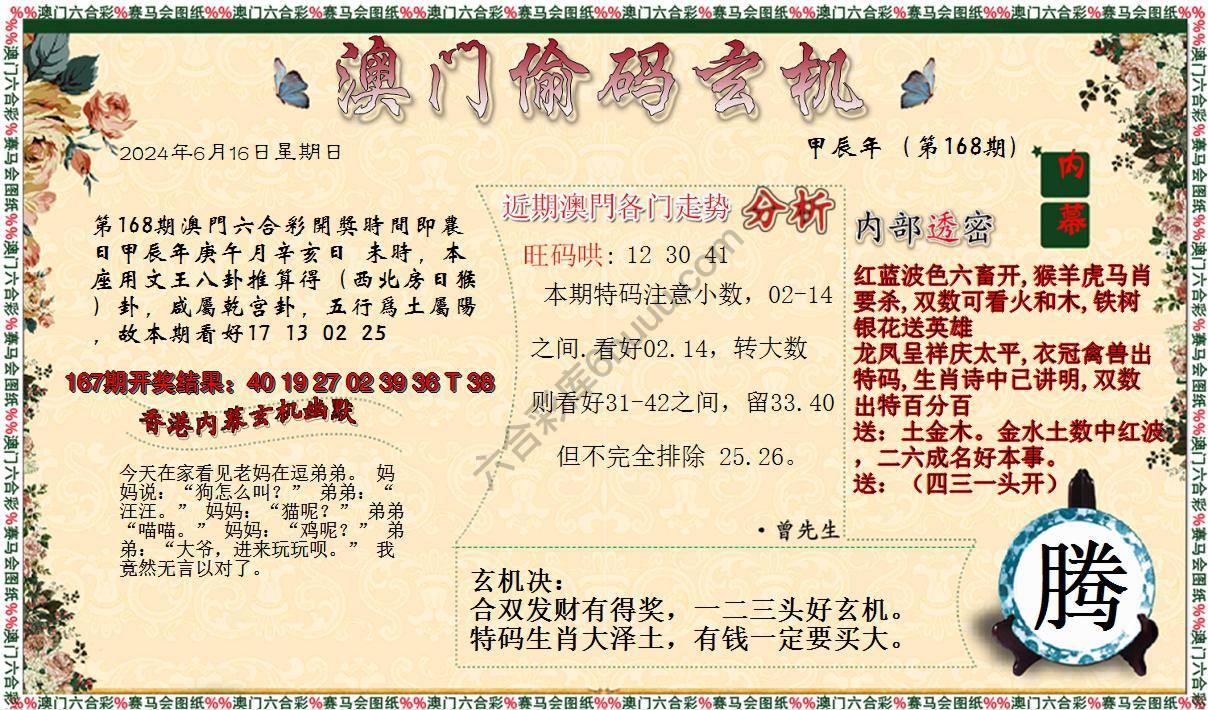 %%澳门六合彩%赛马会图纸%%澳门六合彩%赛马会图纸%%澳门六合彩%赛马会图纸%%澳门六合彩%赛马会图纸%%澳门六合彩%赛马会图纸%%澳门六合彩%赛马会图纸%%
澳门偷码玄机
2024年6月16日星期日
甲辰年（第168期）
内幕
第168期澳門六合彩開獎時間即農
日甲辰年庚午月辛亥日 未時，本
座用文王八卦推算得（西北房日猴
）卦，咸屬乾宫卦，五行爲土屬陽
，故本期看好17 13 02 25
167期开奖结果：40 19 27 02 39 36 T 38
香港内幕玄机幽默
今天在家看见老妈在逗弟弟。 妈
妈说：“狗怎么叫？” 弟弟：“
汪汪。” 妈妈：“猫呢？” 弟弟
“喵喵。” 妈妈：“鸡呢？” 弟
弟：“大爷，进来玩玩呗。” 我
竟然无言以对了。
近期澳門各门走势 分析
旺码哄: 12 30 41
本期特码注意小数，02-14
之间.看好02.14，转大数
则看好31-42之间，留33.40
但不完全排除 25.26。
·曾先生
内部透密
红蓝波色六畜开,猴羊虎马肖
要杀,双数可看火和木,铁树
银花送英雄
龙凤呈祥庆太平,衣冠禽兽出
特码,生肖诗中已讲明,双数
出特百分百
送：土金木。金水土数中红波
，二六成名好本事。
送：（四三一头开）
玄机决：
合双发财有得奖，一二三头好玄机。
特码生肖大泽土，有钱一定要买大。
腾
%%澳门六合彩%赛马会图纸%%澳门六合彩%赛马会图纸%%澳门六合彩%赛马会图纸%%澳门六合彩%赛马会图纸%%澳门六合彩%赛马会图纸%%澳门六合彩%赛马会图纸%%